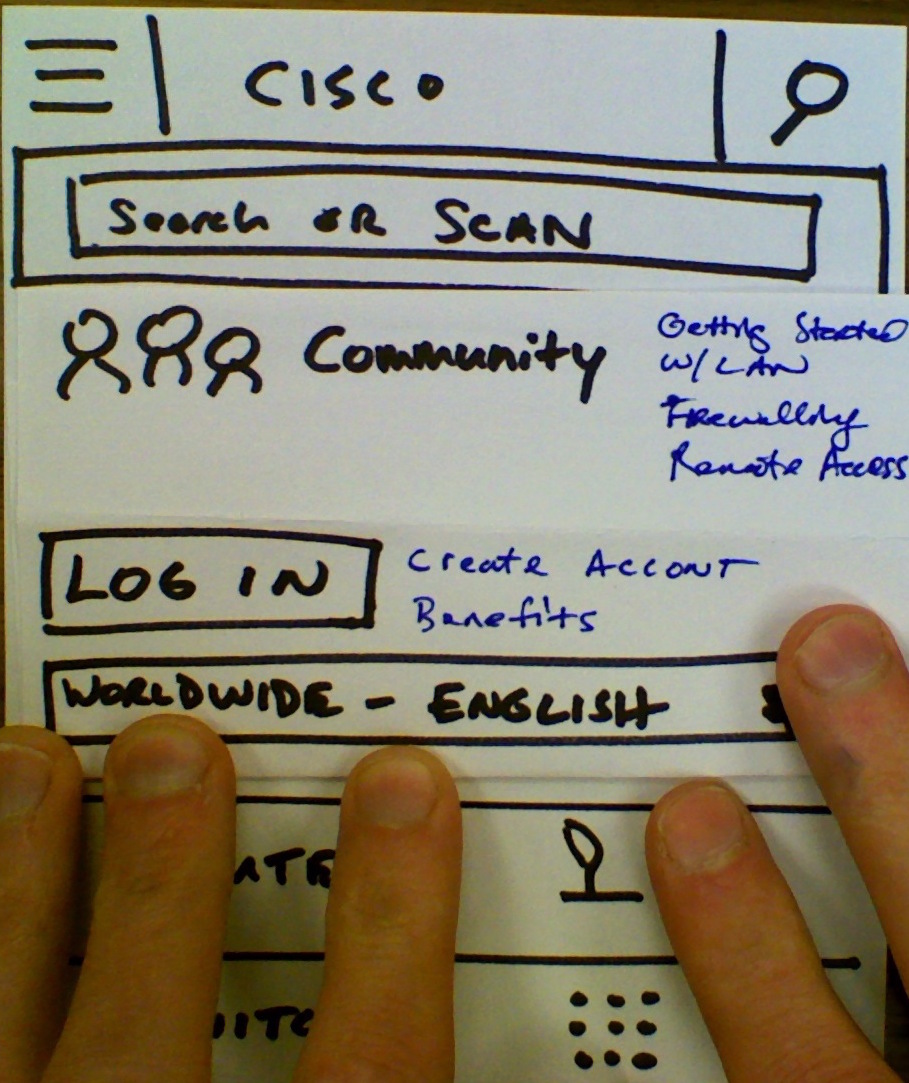 CISCO
Search OR SCAN
Community
Getting Started
W/ LAN
Firewalling
Remote Access
LOG IN
Create Accont
Benefits
WORLDWIDE - ENGLISH